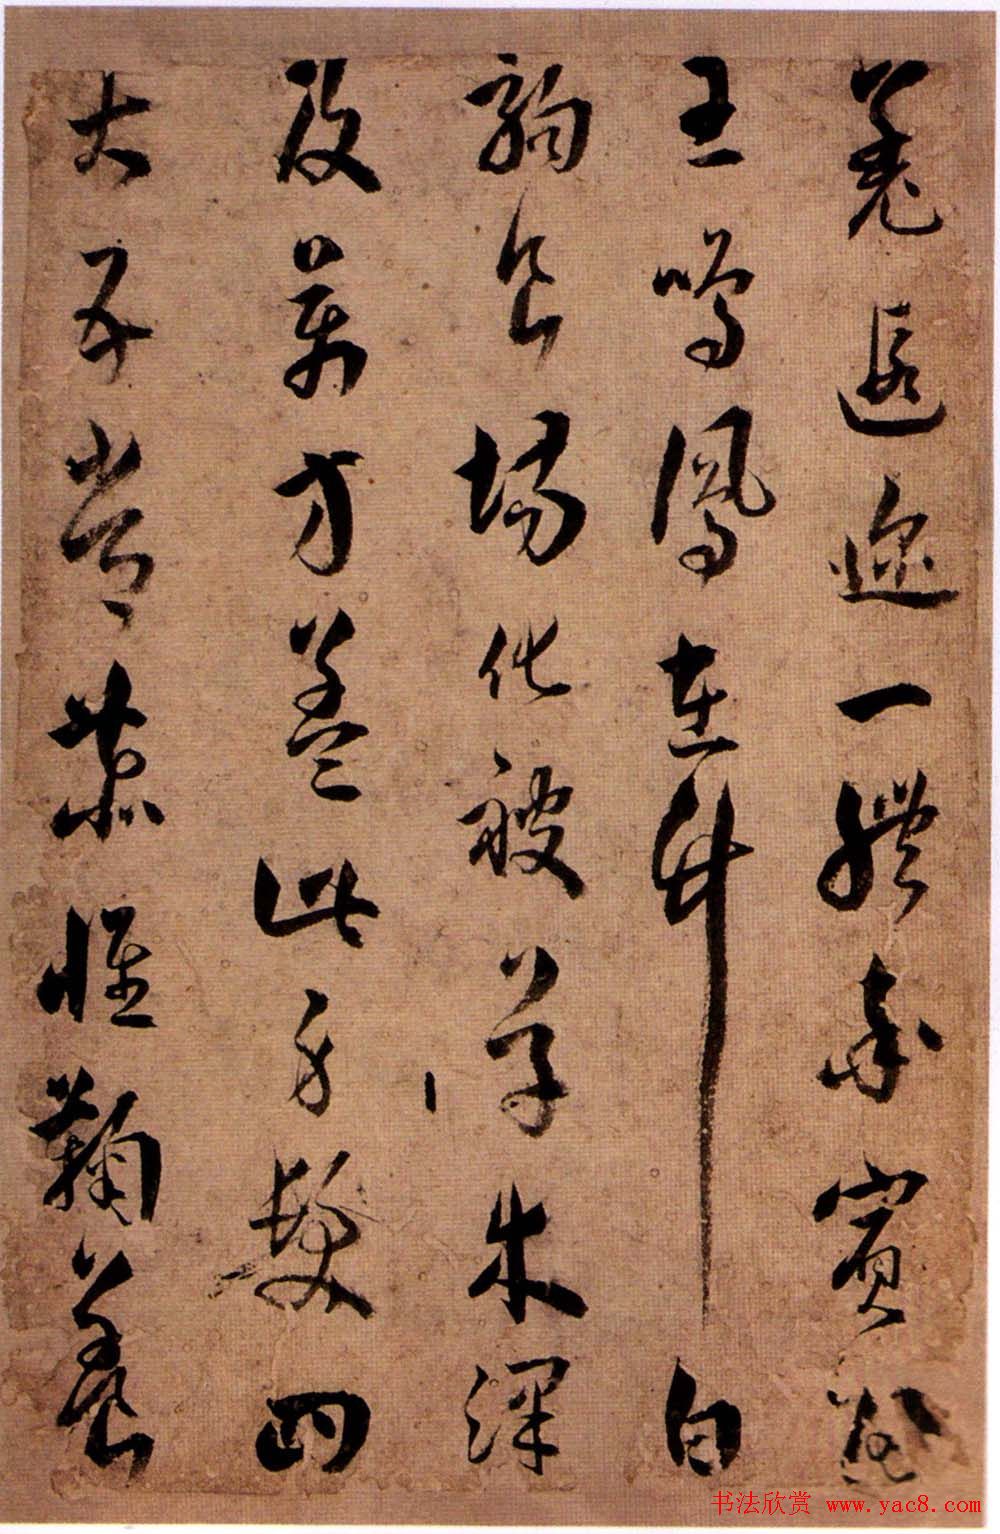 羌遐迩一體率賓歸
王鳴鳳在竹白
駒食場化被草木
及萬方蓋此身髮四
大五常恭惟鞠養
书法欣赏 www.yac8.com